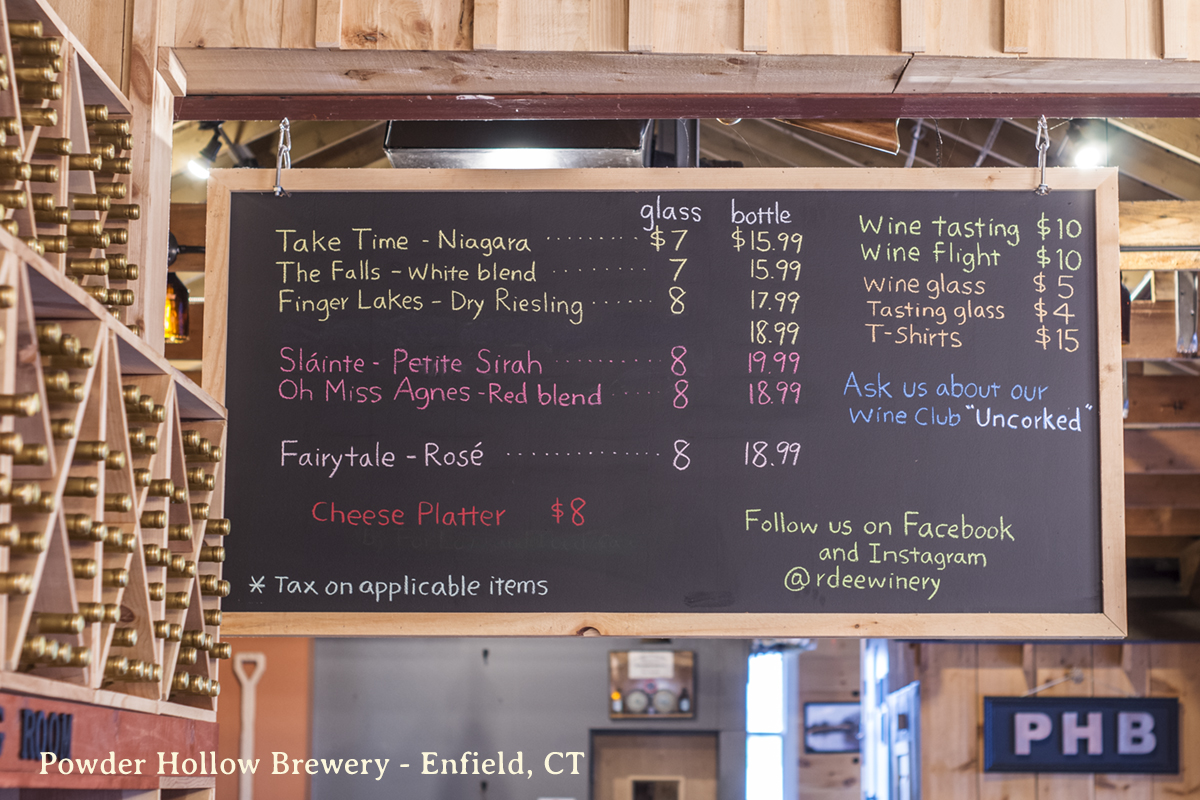 glass bottle
Take Time - Niagara $7 $15.99
The Falls - White blend 7 15.99
Finger Lakes - Dry Riesling 8 17.99
18.99
Sláinte - Petite Sirah 8 19.99
Oh Miss Agnes - Red blend 8 18.99
Fairytale - Rosé 8 18.99
Cheese Platter $8
* Tax on applicable items
Wine tasting $10
Wine flight $10
Wine glass $5
Tasting glass $4
T-Shirts $15
Ask us about our
Wine Club "Uncorked"
Follow us on Facebook
and Instagram
@rdeewinery
ROOM
PHB
Powder Hollow Brewery - Enfield, CT